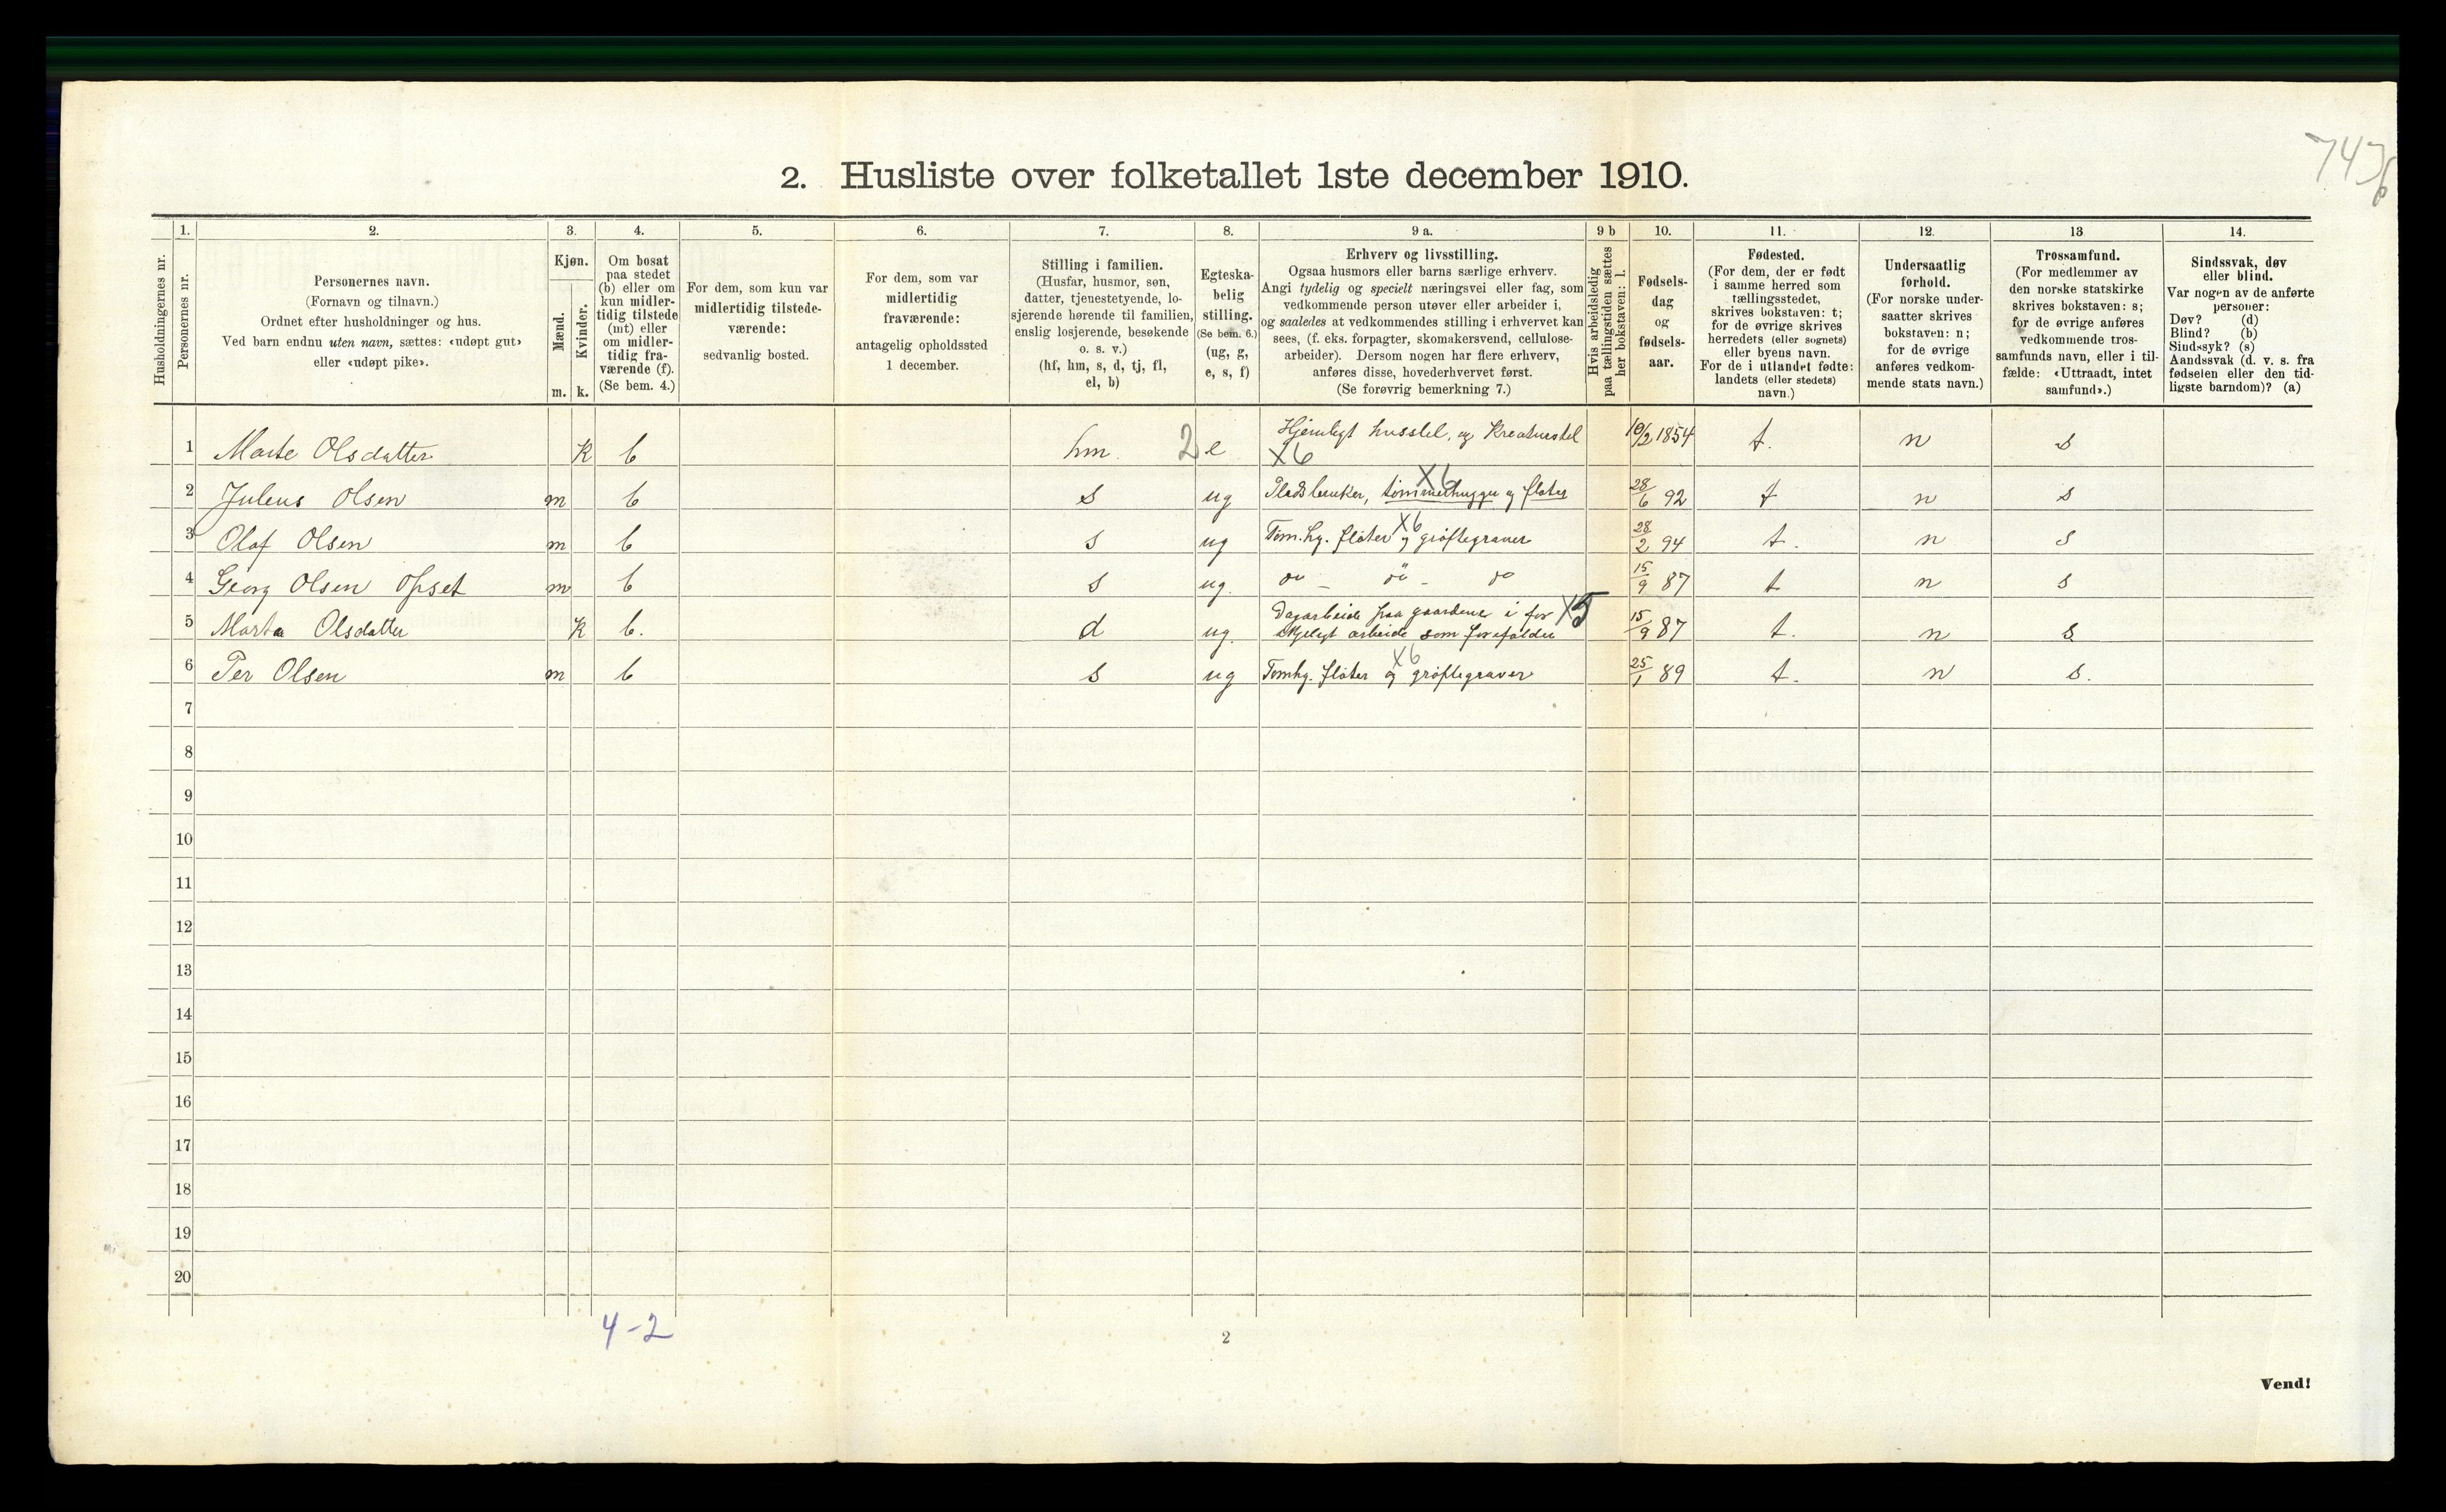 7436
2. Husliste over folketallet 1ste december 1910.
Husholdningernes nr.
1.
Personernes nr.
2.
Personernes navn.
(Fornavn og tilnavn.)
Ordnet efter husholdninger og hus.
Ved barn endnu uten navn, sættes: «udøpt gut»
eller «udøpt pike».
3.
Kjøn.
Mænd.
Kvinder.
m. k.
4.
Om bosat
paa stedet
(b) eller om
kun midler-
tidig tilstede
(mt) eller
om midler-
tidig fra-
værende (f).
(Se bem. 4.)
5.
For dem, som kun var
midlertidig tilstede-
værende:
sedvanlig bosted.
6.
For dem, som var
midlertidig
fraværende:
antagelig opholdssted
1 december.
7.
Stilling i familien.
(Husfar, husmor, søn,
datter, tjenestetyende, lo-
sjerende hørende til familien,
enslig losjerende, besøkende
o. s. v.)
(hf, hm, s, d, tj, fl,
el, b)
8.
Egteska-
belig
stilling.
(Se bem. 6.)
(ug, g,
e, s, f)
9 a.
Erhverv og livsstilling.
Ogsaa husmors eller barns særlige erhverv.
Angi tydelig og specielt næringsvei eller fag, som
vedkommende person utøver eller arbeider i,
og saaledes at vedkommendes stilling i erhvervet kan
sees, (f. eks. forpagter, skomakersvend, cellulose-
arbeider). Dersom nogen har flere erhverv,
anføres disse, hovederhvervet først.
(Se forøvrig bemerkning 7.)
9 b
Hvis arbeidsledig
paa tællingstiden sættes
her bokstaven: l.
10.
Fødsels-
dag
og
fødsels-
aar.
11.
Fødested.
(For dem, der er født
i samme herred som
tællingsstedet,
skrives bokstaven: t;
for de øvrige skrives
herredets (eller sognets)
eller byens navn.
For de i utlandet fødte:
landets (eller stedets)
navn.)
12.
Undersaatlig
forhold.
(For norske under-
saatter skrives
bokstaven: n;
for de øvrige
anføres vedkom-
mende stats navn.)
13
Trossamfund.
(For medlemmer av
den norske statskirke
skrives bokstaven: s;
for de øvrige anføres
vedkommende tros-
samfunds navn, eller i til-
fælde: «Uttraadt, intet
samfund».)
14.
Sindssvak, døv
eller blind.
Var nogen av de anførte
personer:
Døv? (d)
Blind? (b)
Sindssyk? (s)
Aandssvak (d. v. s. fra
fødselen eller den tid-
ligste barndom)? (a)
1 Marte Olsdatter K b hm 2 e Hjemligt husstel, og Kreaturstel X6 10/2 1854 t. n s
2 Juleus Olsen m b s ug Pladsbruker, tømmerhugger og fløter X6 28/6 92 t n s
3 Olaf Olsen m b s ug Tøm.hg. fløter og grøftegraver X6 28/2 94 t. n s
4 Georg Olsen Opset m b s ug. do - do - do 15/9 87 t n s
5 Marta Olsdatter K b. d ug. Dagarbeide paa gaardene i for
skjeligt arbeide som forefalder X5 15/9 87 t. n s
6 Per Olsen m b s ug Tømhg. fløter og grøftegraver X6 25/1 89 t. n s.
7
8
9
10
11
12
13
14
15
16
17
18
19
20
4-2
2
Vend!